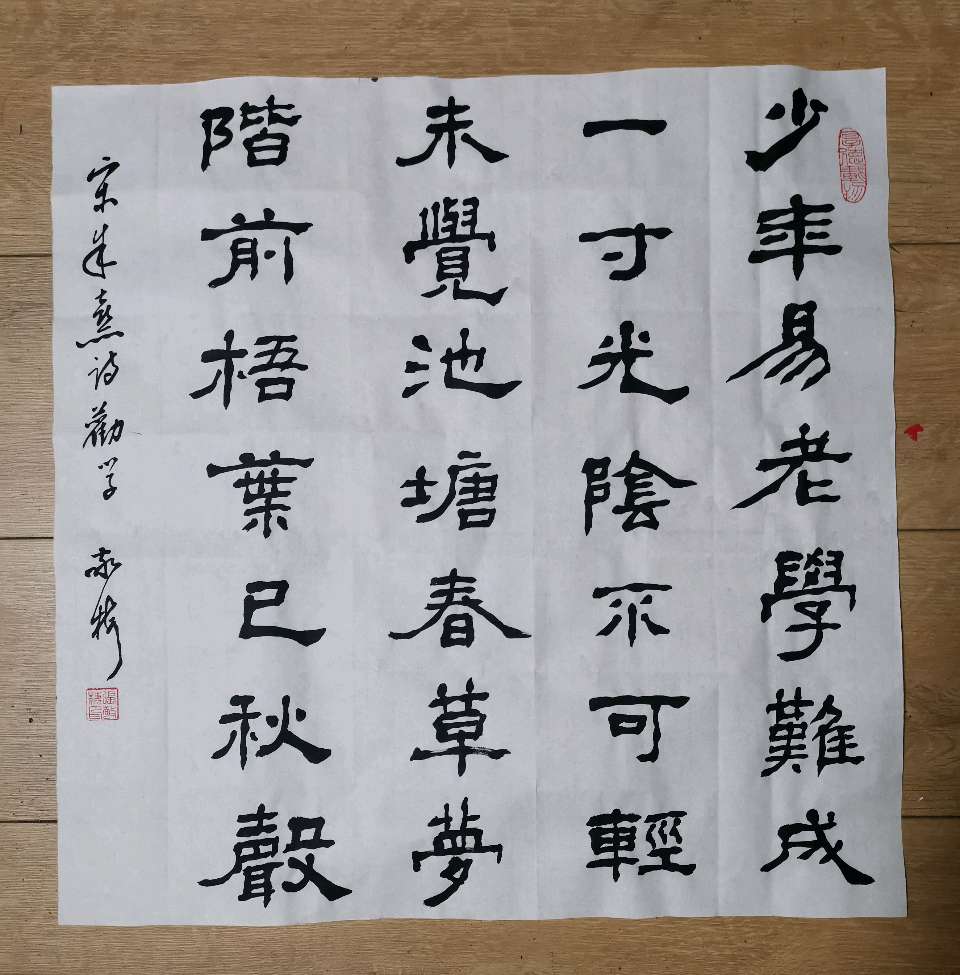 少年易老學難成
一寸光陰不可輕
未覺池塘春草夢
階前梧葉已秋聲
宋朱熹诗勸学
厚德載物